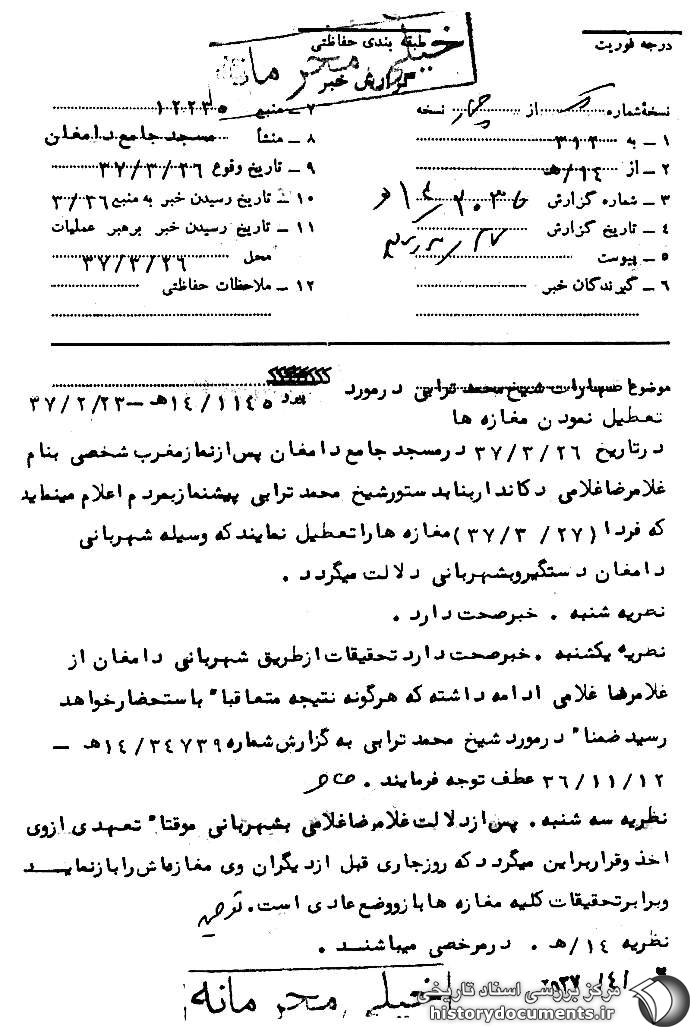 درجه فوریت
طبقه بندی حفاظتی
خیلی محرمانه
گزارش خبر
نسخهٔ شماره از چهار نسخه
۱ ـ به ۳۱۲
۲ ـ از ۱۴/هـ
۳ ـ شماره گزارش
۴ ـ تاریخ گزارش
۵ ـ پیوست
۶ ـ گیرندگان خبر
۷ ـ منبع ۱۲۲۳۵
۸ ـ منشأ مسجد جامع دامغان
۹ ـ تاریخ وقوع ۳۷/۳/۲۶
۱۰ ـ تاریخ رسیدن خبر به منبع ۳/۲۶
۱۱ ـ تاریخ رسیدن خبر برهبر عملیات
محل ۳۷/۳/۲۶
۱۲ ـ ملاحظات حفاظتی
موضوع اظهارات شیخ محمد ترابی در مورد
پیرو ۱۴/۱۱۴۵هـ ـ ۳۷/۲/۲۳
تعطیل نمودن مغازه ها
در تاریخ ۳۷/۳/۲۶ در مسجد جامع دامغان پس از نماز مغرب شخصی بنام
غلامرضا غلامی دکاندار بنابدستور شیخ محمد ترابی پیشنماز بمردم اعلام مینماید
که فردا (۳۷/۳/۲۷) مغازه ها را تعطیل نمایند که وسیله شهربانی
دامغان دستگیر و بشهربانی دلالت میگردد .
نظریه شنبه . خبر صحت دارد .
نظریه یکشنبه . خبر صحت دارد تحقیقات از طریق شهربانی دامغان از
غلامرضا غلامی ادامه داشته که هرگونه نتیجه متعاقباً باستحضار خواهد
رسید ضمناً در مورد شیخ محمد ترابی به گزارش شماره ۱۴/۳۴۷۳۹هـ ـ
۳۶/۱۱/۱۲ عطف توجه فرمایند .
نظریه سه شنبه . پس از دلالت غلامرضا غلامی بشهربانی موقتاً تعهدی از وی
اخذ و قرار بر این میگردد که روز جاری قبل از دیگران وی مغازه اش را باز نماید
و برابر تحقیقات کلیه مغازه ها باز و وضع عادی است .
نظریه ۱۴/هـ . در مرخصی میباشند .
خیلی محرمانه
مرکز بررسی اسناد تاریخی
historydocuments.ir